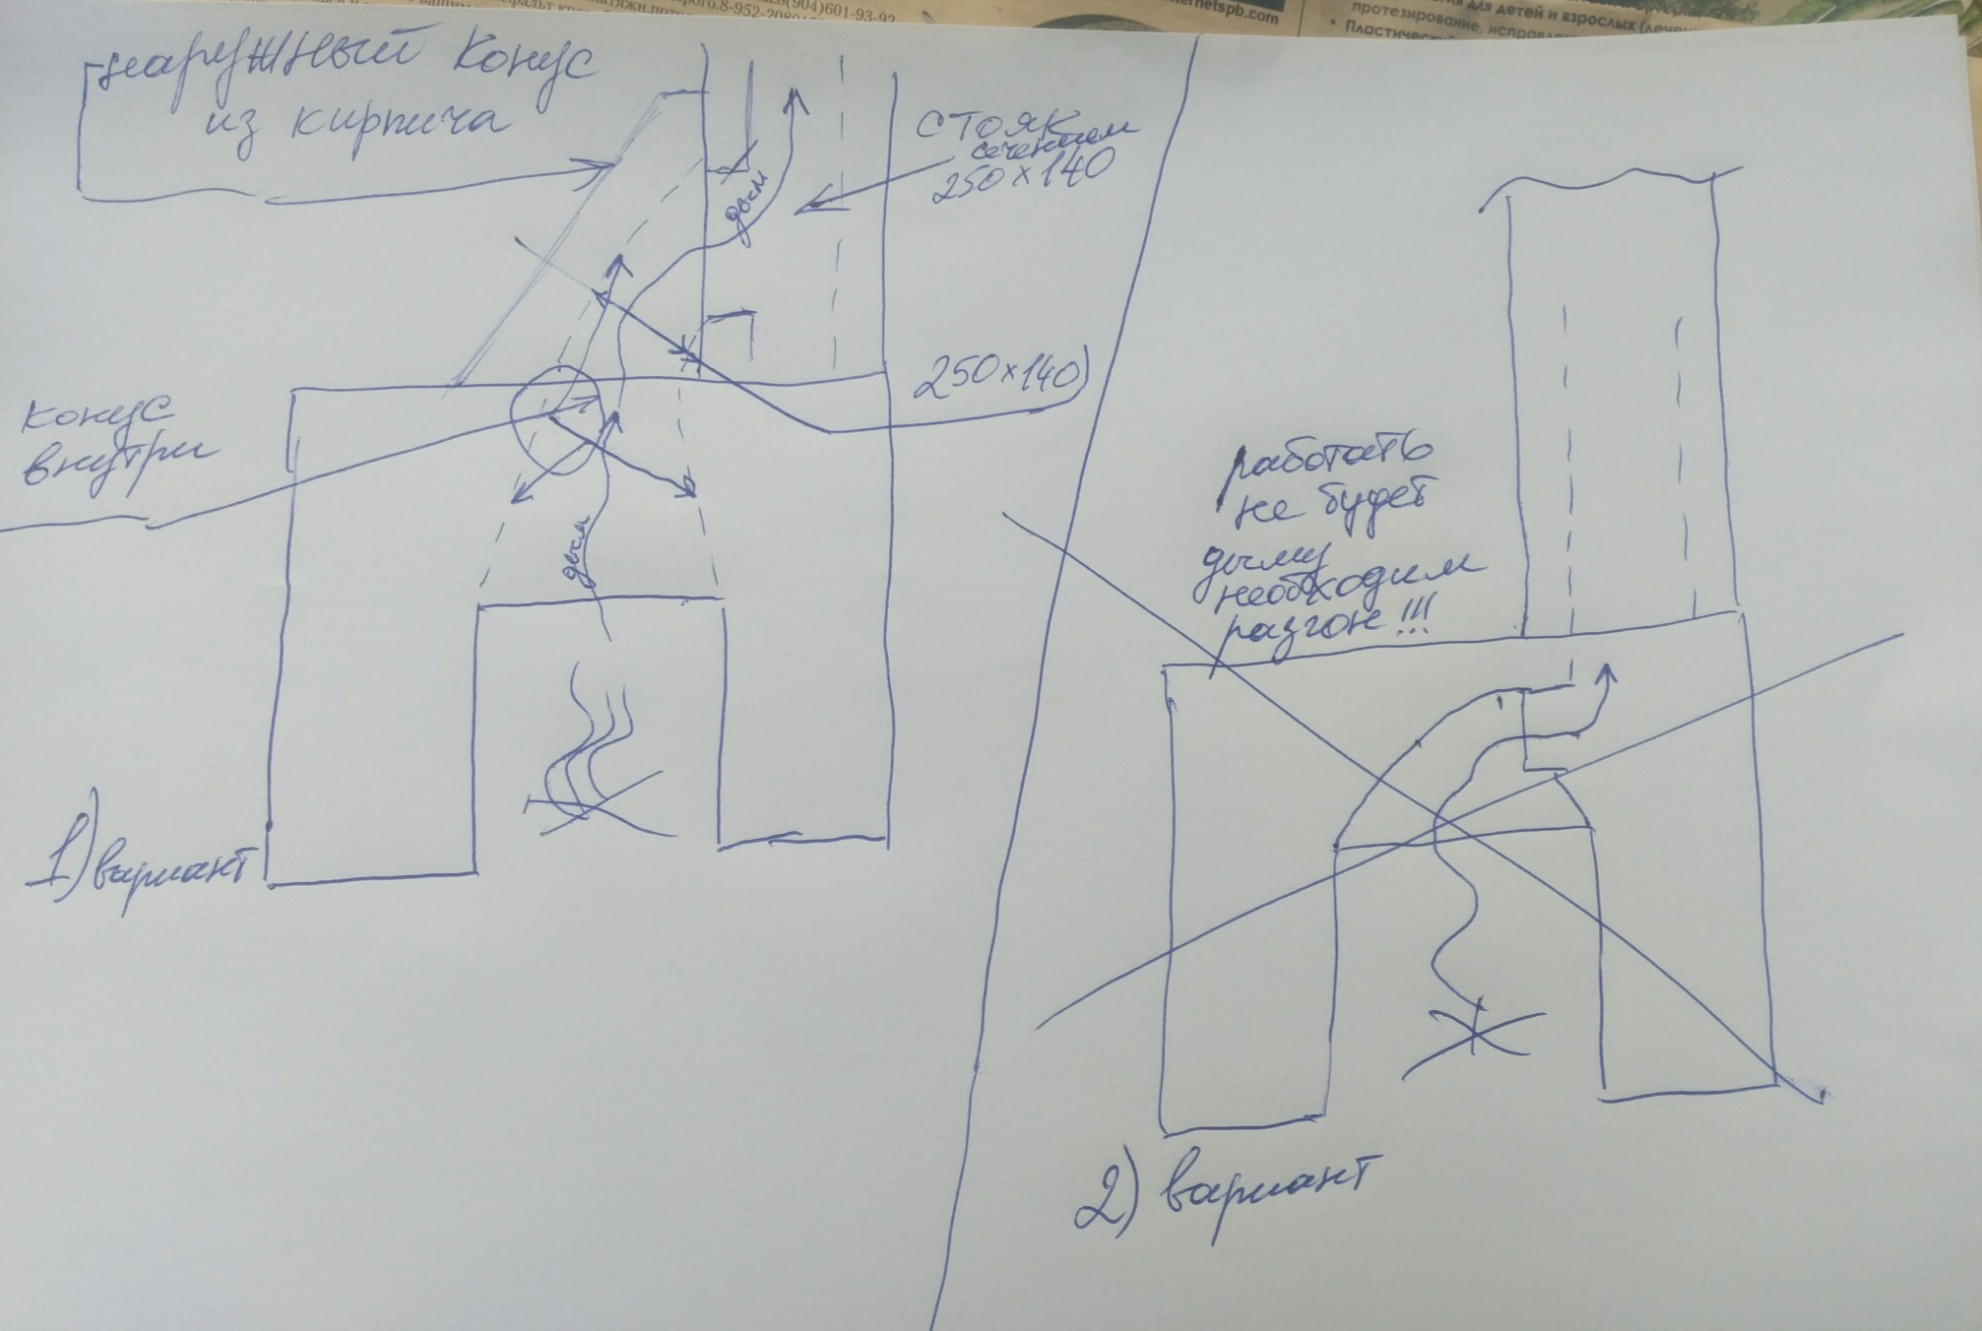 наружный конус
из кирпича
стояк
сечением
250×140
дым
250×140)
конус
внутри
дым
1) вариант
работать
не будет
дыму
необходим
разгон!!!
2) вариант
8(904)601-93-92
ernetspb.com
для детей и взрослых
протезирование,